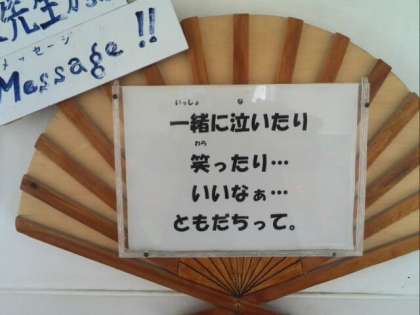 先生
メッセージ
Message!!
いっしょ な
一緒に泣いたり
わら
笑ったり…
いいなぁ…
ともだちって。